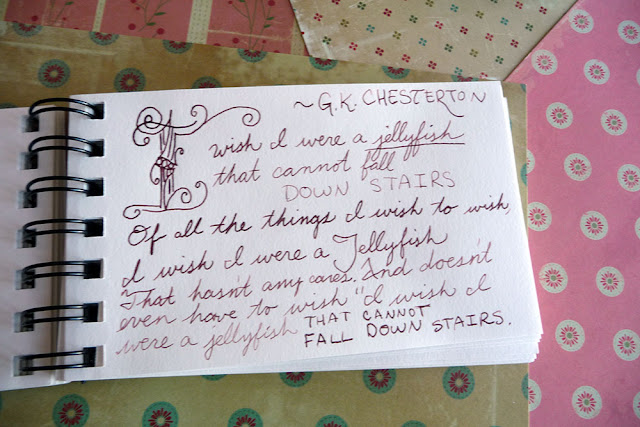 ~G.K. CHESTERTON
I wish I were a jellyfish
that cannot fall
DOWN STAIRS
Of all the things I wish to wish,
I wish I were a Jellyfish
That hasn't any cares. And doesn't
even have to wish "I wish I
were a jellyfish THAT CANNOT
FALL DOWN STAIRS.